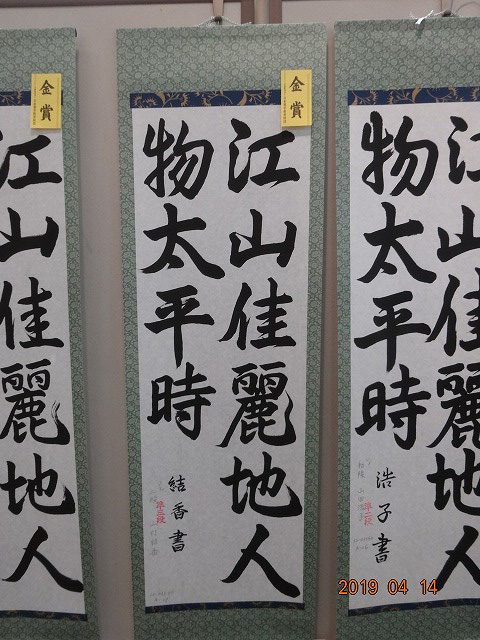 金賞
江山佳麗地人
金賞
江山佳麗地人
物太平時
結香書
準三段
江山佳麗地人
物太平時
浩子書
準二段
2019 04 14